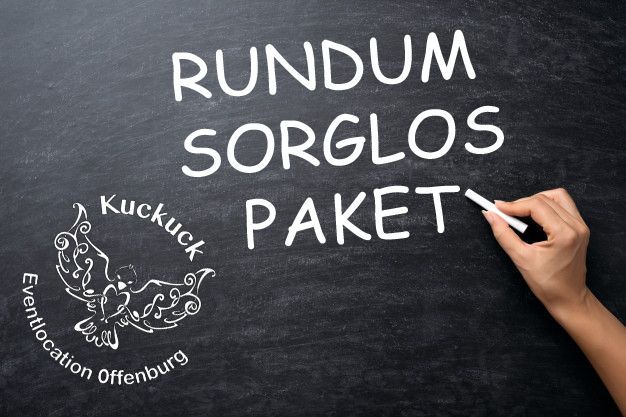 RUNDUM
SORGLOS
PAKET
Kuckuck
Eventlocation Offenburg